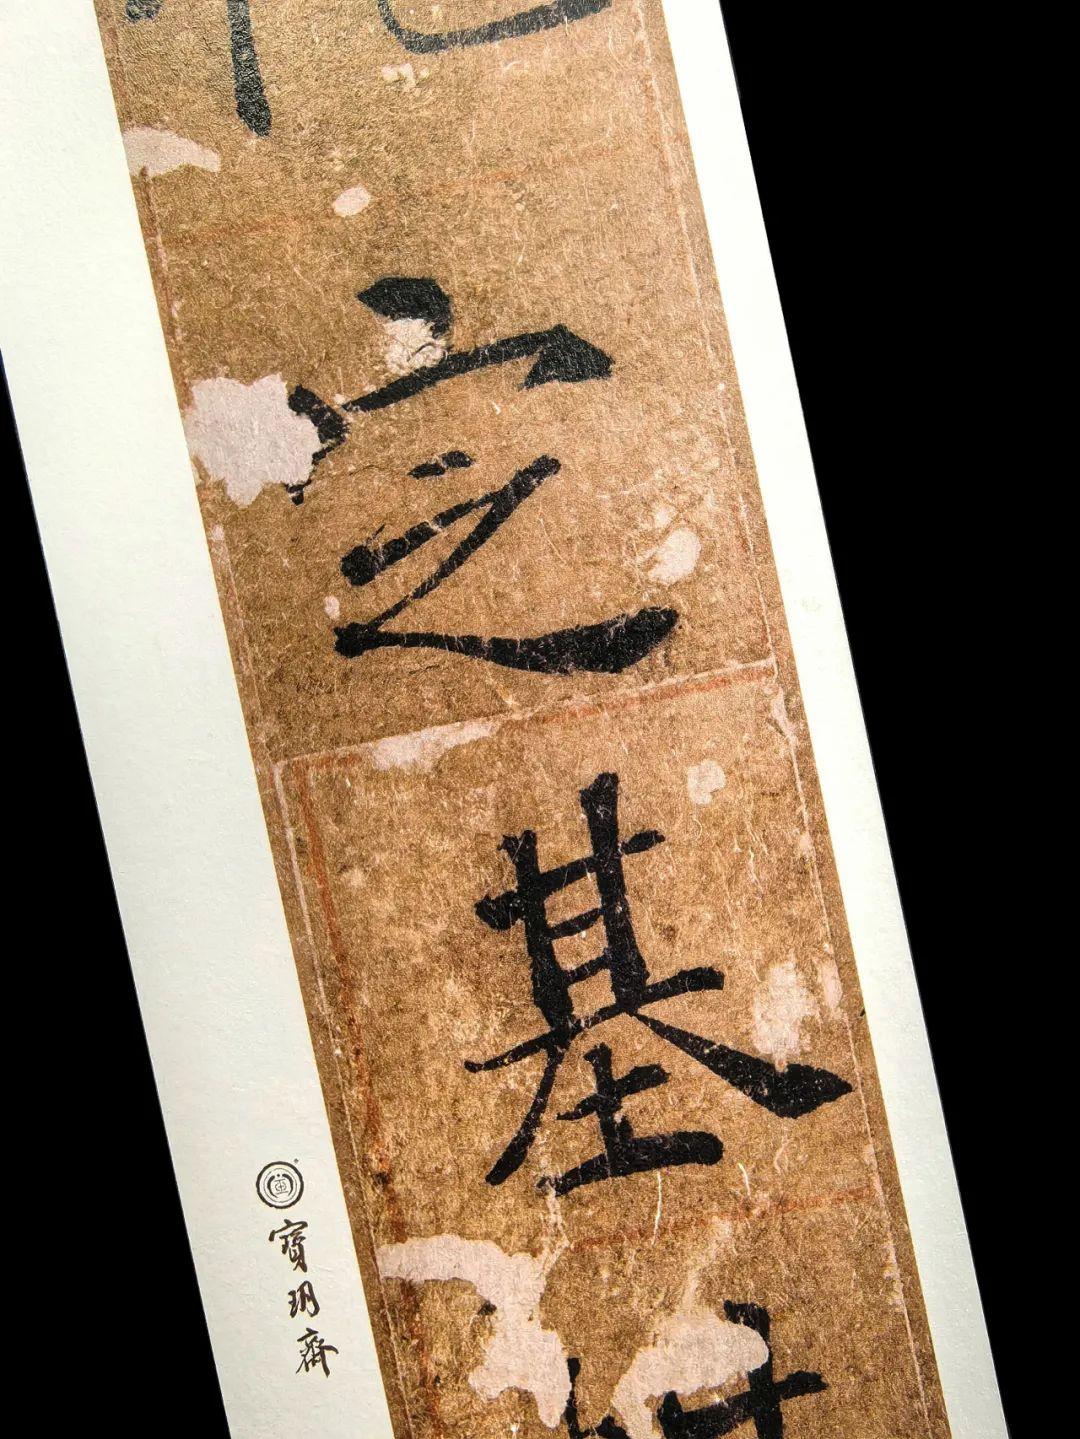 㝎
基
寶玥齋